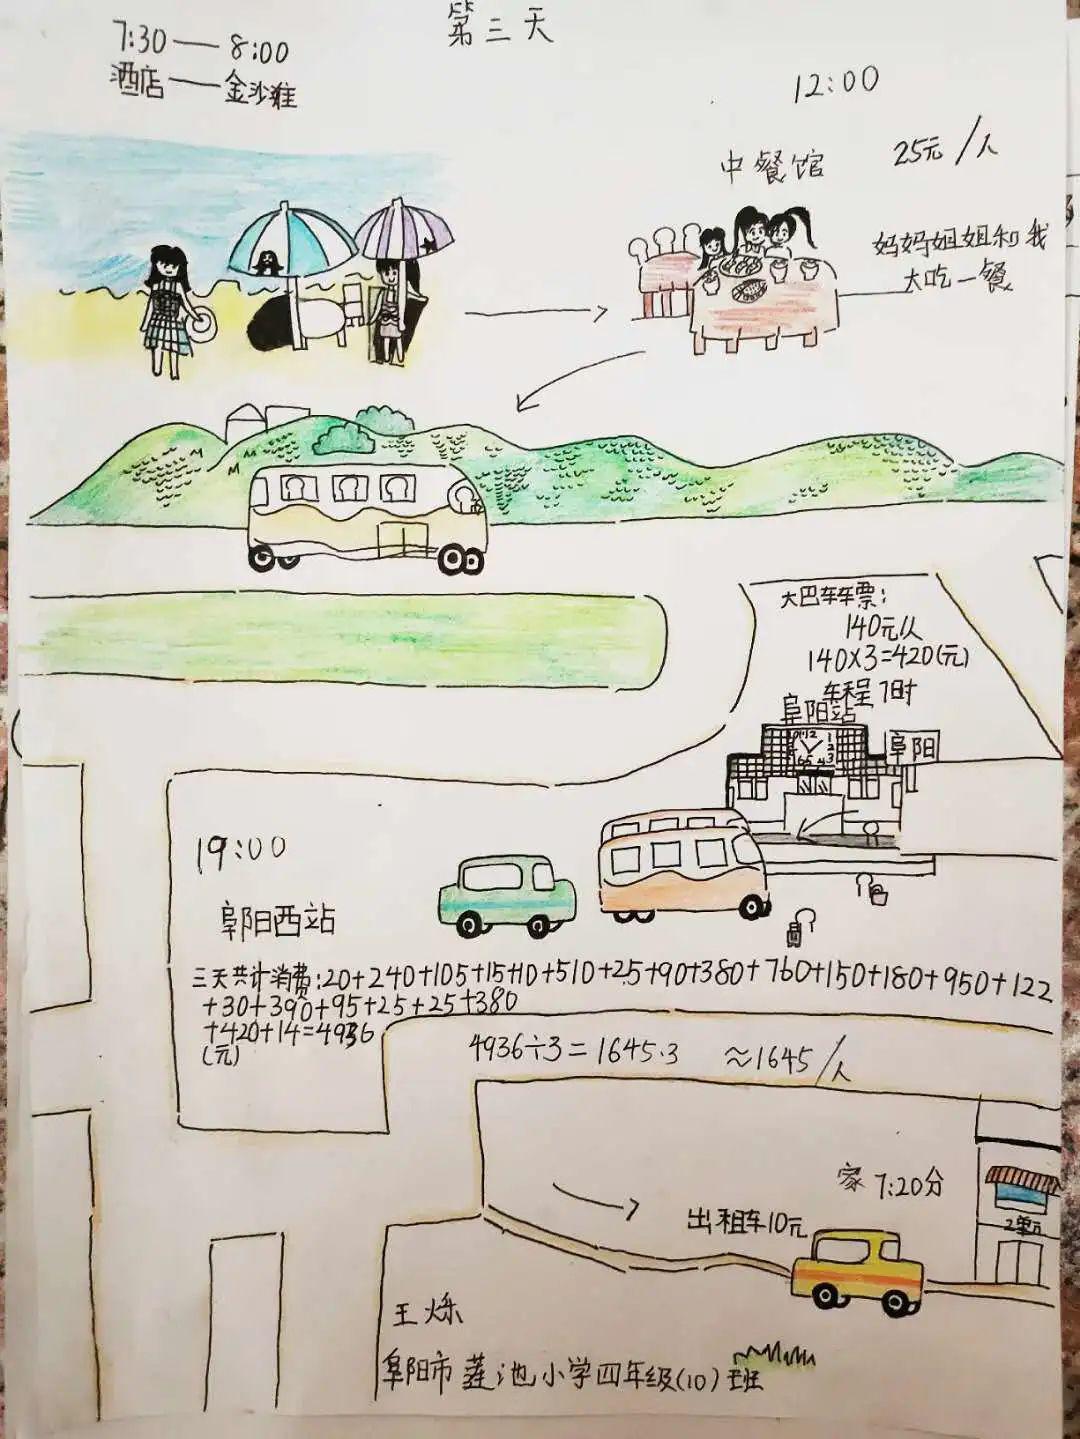 第三天
7:30——8:00
酒店——金沙滩
12:00
中餐馆 25元/人
妈妈姐姐和我
大吃一餐
大巴车车票:
140元/人
140×3=420(元)
车程7时
阜阳站
阜阳
19:00
阜阳西站
三天共计消费:20+240+105+15+10+510+25+90+380+760+150+180+950+122
+30+390+95+25+25+380
+420+14=4936
(元)
4936÷3=1645.3 ≈1645/人
家 7:20分
出租车10元
2单元
王烁
阜阳市莲池小学四年级(10)班